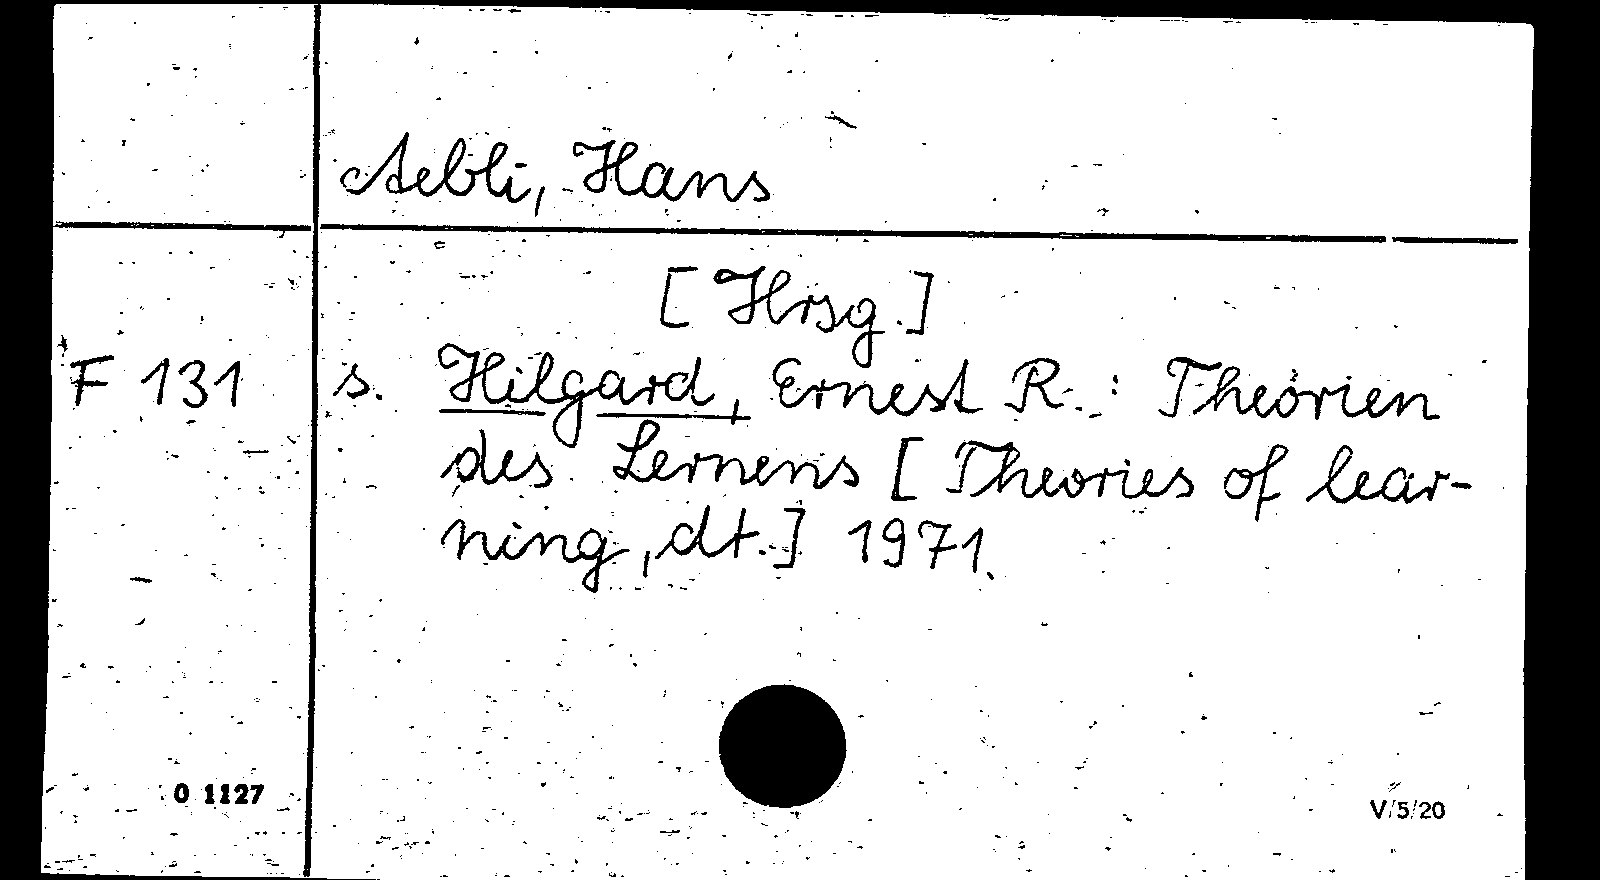 Aebli, Hans
[Hrsg.]
F 131 s. Hilgard, Ernest R.: Theorien
des Lernens [Theories of lear-
ning, dt.] 1971.
0 1127
V/5/20